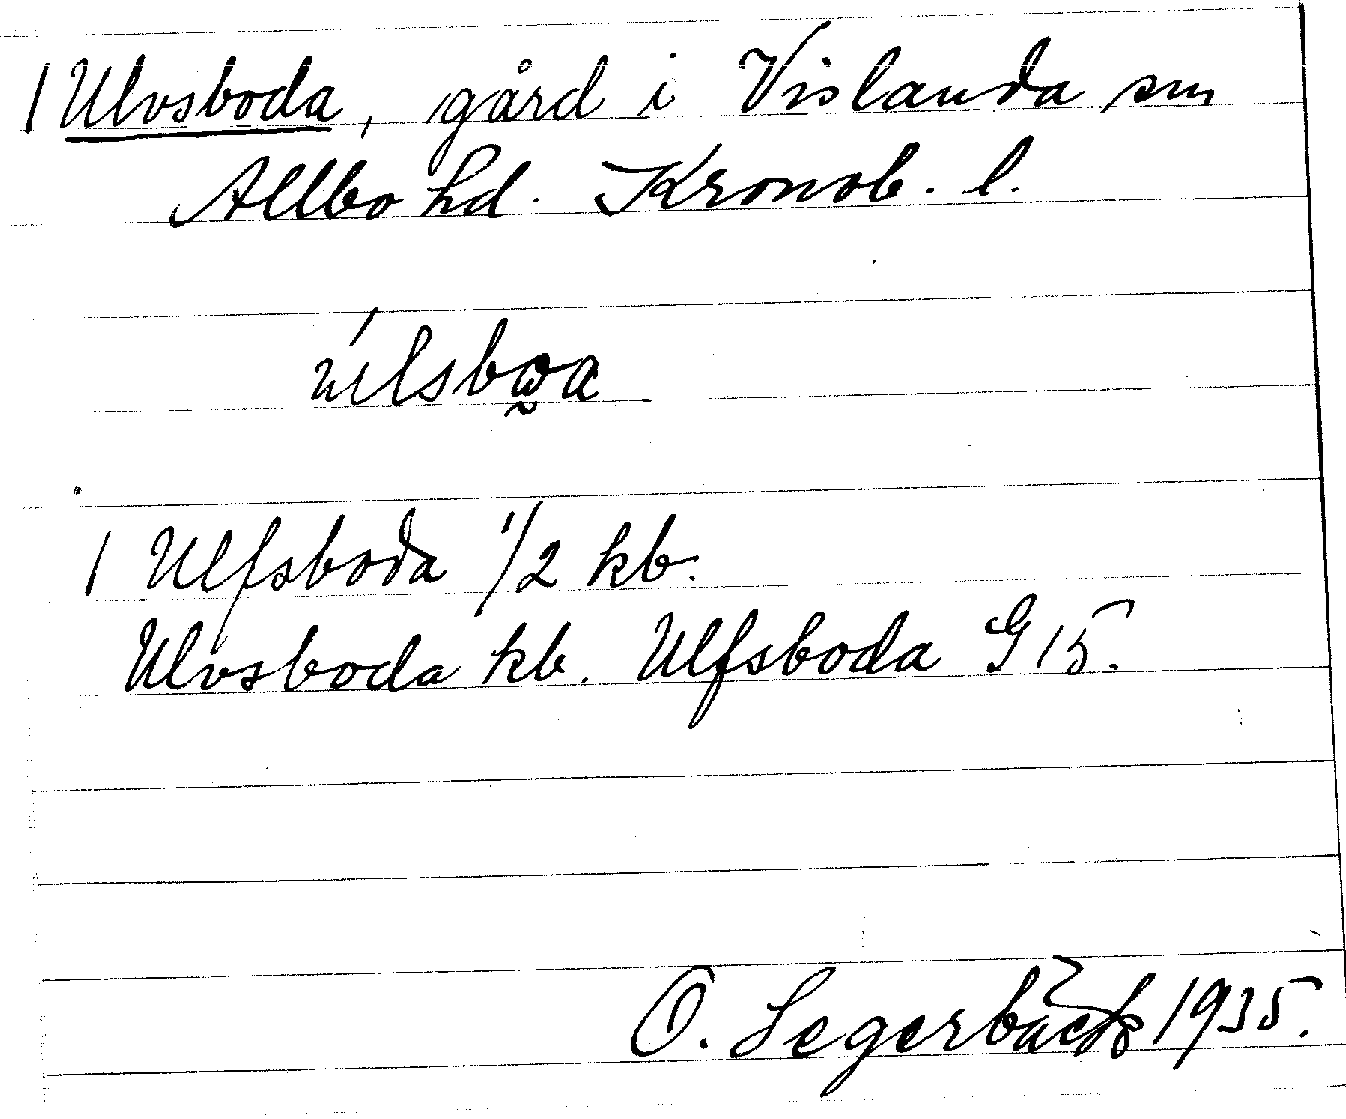 1 Ulvsboda, gård i Vislanda sn
Allbo hd. Kronob. l.
úlsbωa
1 Ulfsboda 1/2 kb.
Ulvsboda kb. Ulfsboda G 15.
O. Segerbäck 1935.